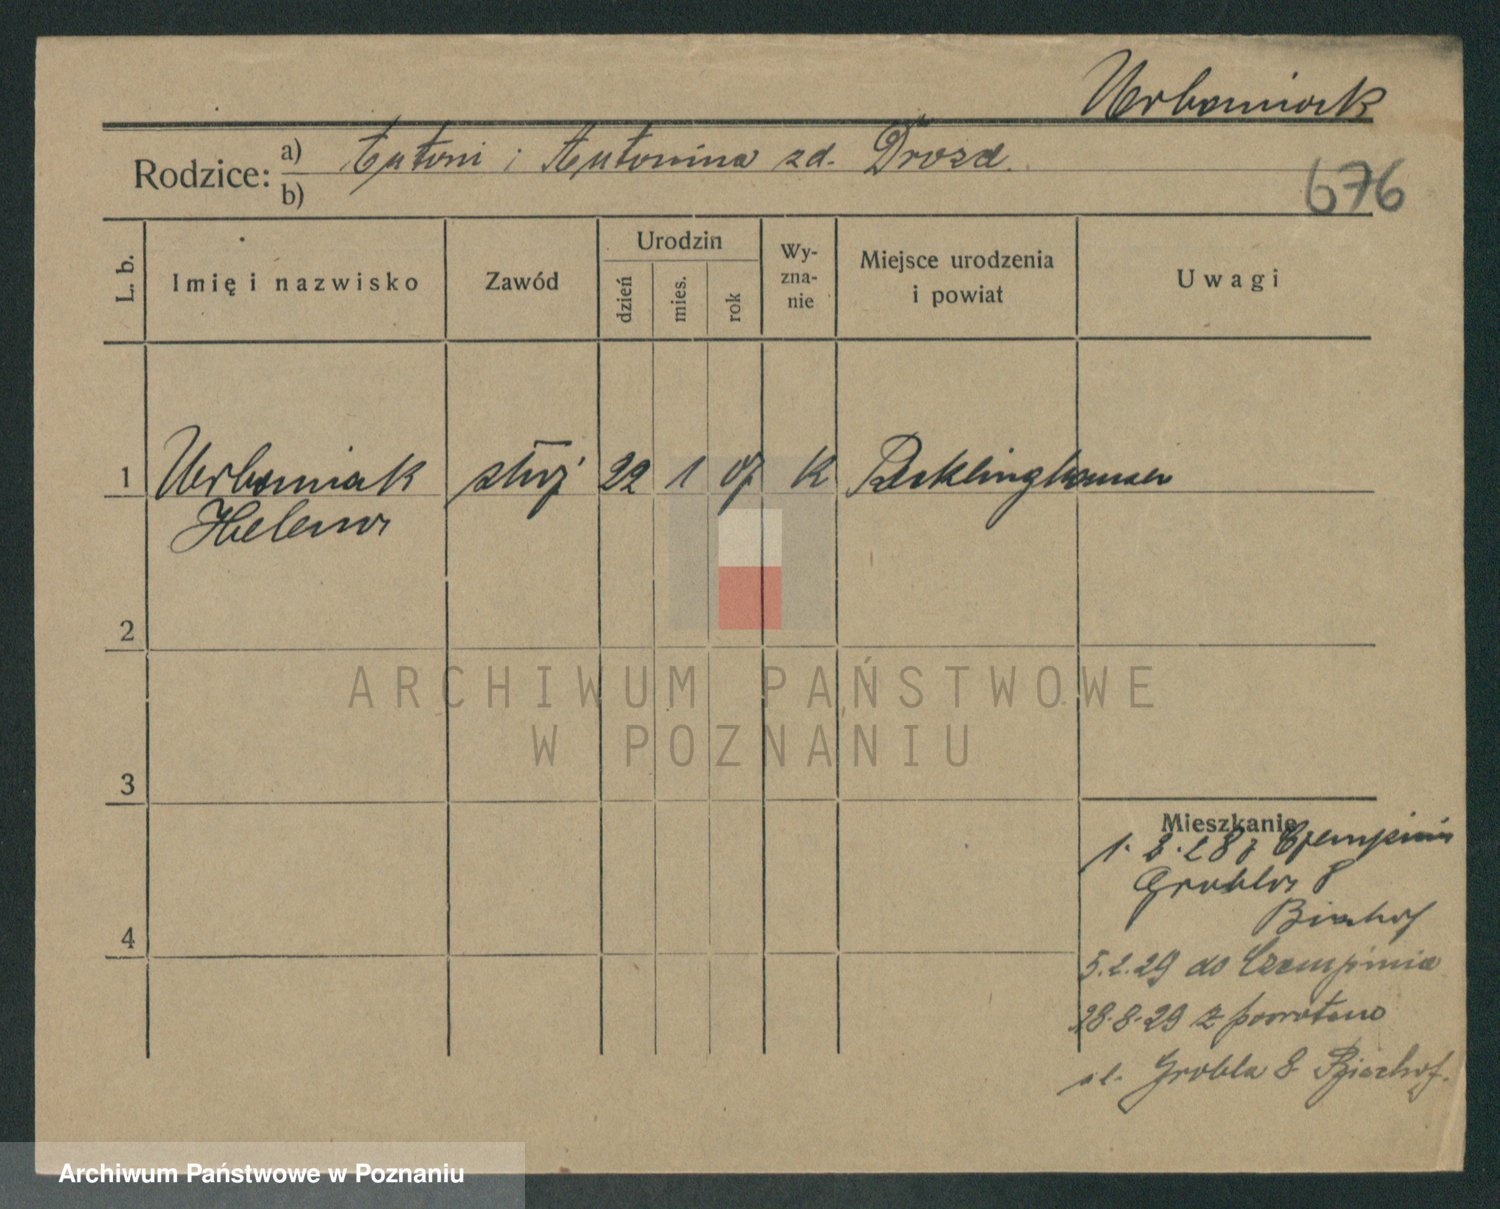 Urbaniak
Rodzice: a) Antoni i Antonina zd. Drozd.
b)
676
L. b.
Imię i nazwisko
Zawód
Urodzin
dzień
mies.
rok
Wy-
zna-
nie
Miejsce urodzenia
i powiat
Uwagi
1 Urbaniak 22 1 07 K Recklinghausen
Helena
2
3
4
Mieszkanie
1. 2. 28 z Czempinia
Grobla 8
Bischof
5.2.29 do Czempinia
28.8.29 z powrotem
ul. Grobla 8 Bischof.
ARCHIWUM PAŃSTWOWE
W POZNANIU
Archiwum Państwowe w Poznaniu